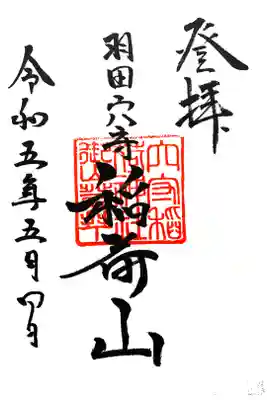 登拝
羽田穴守
稲荷山
穴守稲
令和五年五月四日